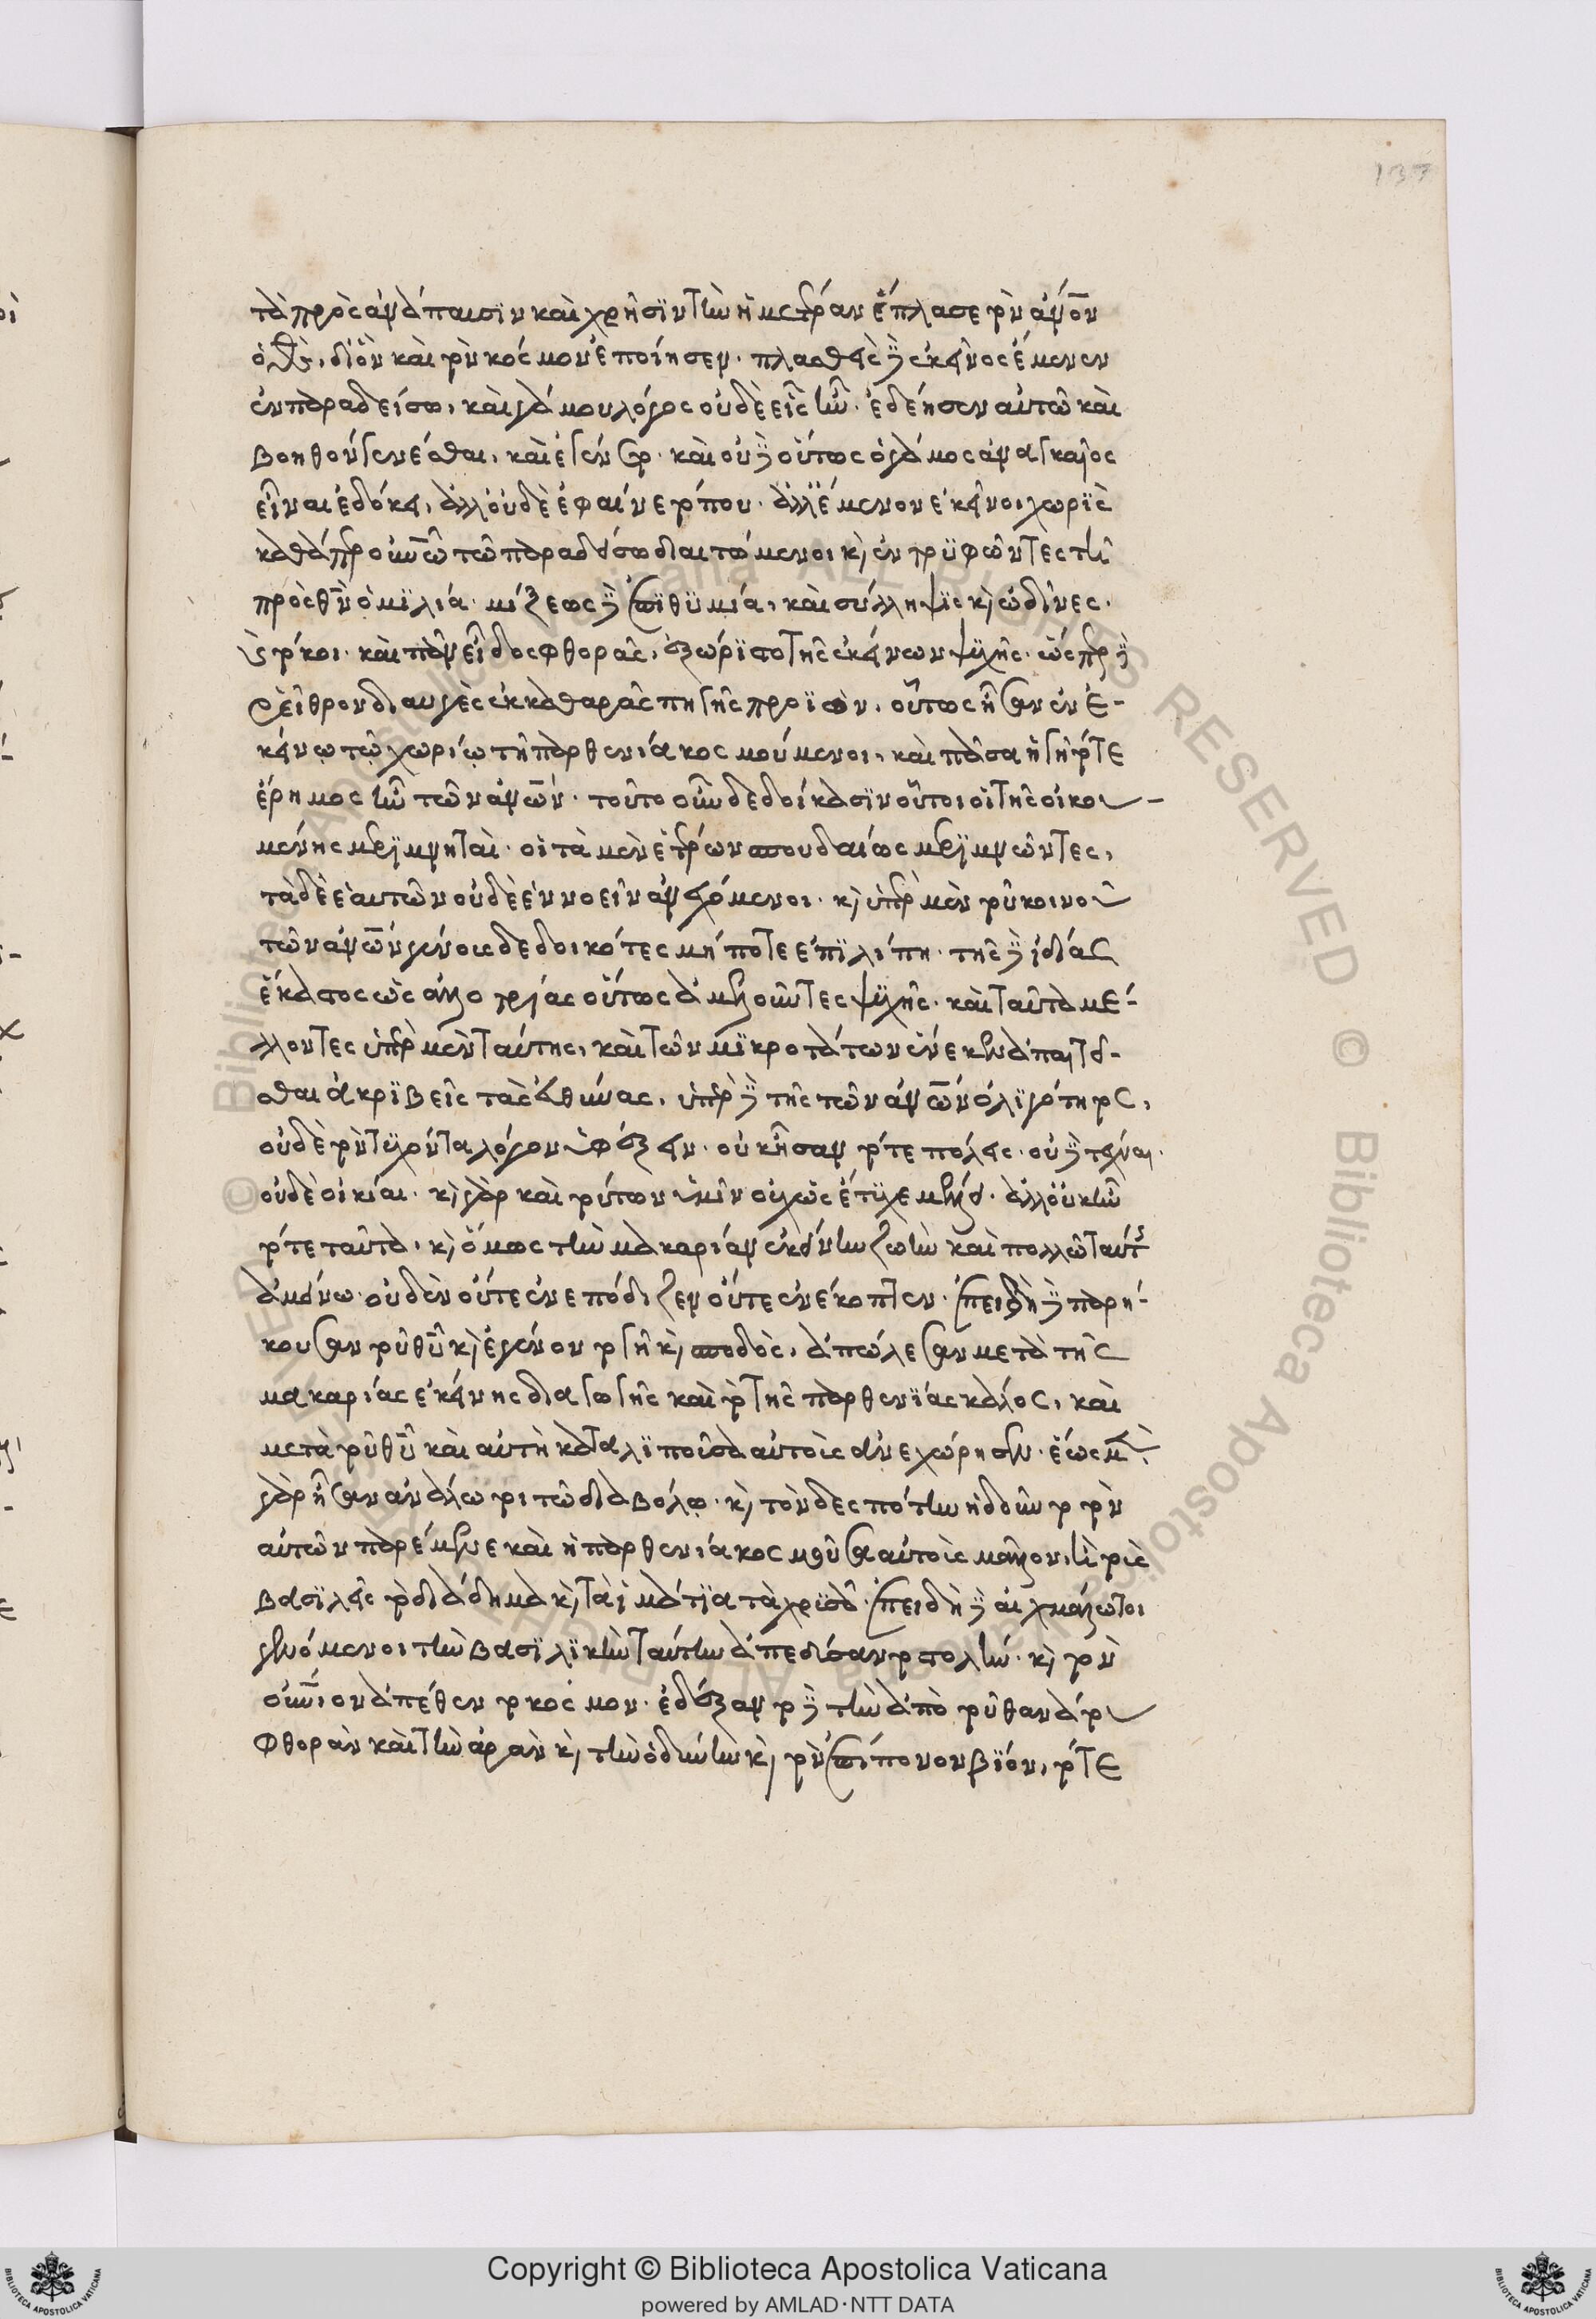 τὰ πρὸς ἀνάπαυσιν καὶ χρῆσιν τὴν ἡμετέραν ἔπλασε τὸν ἄνον
ὁ θς, δι' ὃν καὶ τὸν κόσμον ἐποίησεν. πλασθεὶς δὲ ἐκεῖνος ἔμενεν
ἐν παραδείσω, καὶ γάμου λόγος οὐδὲ εἷς ἦν. ἐδέησεν αὐτῶ καὶ
βοηθὸν γενέσθαι, καὶ ἐγένετο. καὶ οὐδὲ οὕτως ὁ γάμος ἀναγκαῖος
εἶναι ἐδόκει, ἀλλ' οὐδὲ ἐφαίνετό που. ἀλλ' ἔμενον ἐκεῖνοι χωρὶς
καθάπερ οὐνῶ τῶ παραδείσω διαιτώμενοι κὶ ἐντρυφῶντες τῆ
πρὸς θν ὁμιλία. μίξεως δὲ ἐπιθυμία, καὶ σύλληψις κὶ ὠδῖνες.
κὶ τόκοι. καὶ πᾶν εἶδος φθορᾶς, ἐξώριστο τῆς ἐκείνων ψυχῆς. ὥσπερ δὲ
ῥεῖθρον διαυγὲς ἐκ καθαρᾶς πηγῆς προϊὸν, οὕτως ἦσαν ἐν ἐ-
κείνῳ τῷ χωρίῳ τῆ παρθενία κοσμούμενοι, καὶ πᾶσα ἡ γῆ τότε
ἔρημος ἦν τῶν ἀνων. τοῦτο οὖν δεδοίκασιν οὗτοι οἱ τῆς οἰκου-
μένης μεριμνηταὶ. οἱ τὰ μὲν ἑτέρων σπουδαίως μεριμνῶντες,
τὰ δὲ ἑαυτῶν οὐδὲ ἐννοεῖν ἀνεχόμενοι. κὶ ὑπὲρ μὲν τοῦ κοινοῦ
τῶν ἀνων γένους δεδοικότες μή ποτε ἐπιλίπη. τῆς δὲ ἰδίας
ἕκαστος ὡς ἀλλοτρίας οὕτως ἀμελοῦντες ψυχῆς. καὶ ταῦτα μέ-
λλοντες ὑπὲρ μὲν ταύτης, καὶ τῶν μικροτάτων ἕνεκεν ἀπαιτεῖ-
σθαι ἀκριβεῖς τὰς εὐθύνας, ὑπὲρ δὲ τῆς τῶν ἀνων ὀλιγότητος,
οὐδὲ τὸν τυχόντα λόγον ὑφέξειν. οὐκ ἦσαν τότε πόλεις. οὐδὲ τέχναι.
οὐδὲ οἰκίαι. κὶ γὰρ καὶ τούτων ὑμῖν οὐχ ὡς ἔτυχε μέλει. ἀλλ' οὐκ ἦν
τότε ταῦτα. κὶ ὅμως τὴν μακαρίαν ἐκείνην ζωὴν καὶ πολλῶ ταύτης
ἀμείνω. οὐδὲν οὔτε ἐνεπόδιζεν οὔτε ἐνέκοπτεν. ἐπειδὴ δὲ παρή-
κουσαν τοῦ θῦ κὶ ἐγένοντο γῆ κὶ σποδὸς, ἀπώλεσαν μετὰ τῆς
μακαρίας ἐκείνης διαγωγῆς καὶ τὸ τῆς παρθενίας κάλλος, καὶ
μετὰ τοῦ θῦ καὶ αὐτὴ καταλιποῦσα αὐτοὺς ἀνεχώρησεν. ἕως μὲν
γὰρ ἦσαν ἀνάλωτοι τῶ διαβόλῳ. κὶ τὸν δεσπότην ἠδοῦντο τὸν
αὐτῶν παρέμενε καὶ ἡ παρθενία κοσμοῦσα αὐτοὺς μᾶλλον, ἢ τοὺς
βασιλεῖς τὸ διάδημα κὶ τὰ ἱμάτια τὰ χρυσᾶ. ἐπειδὴ δὲ αἰχμάλωτοι
γενόμενοι τὴν βασιλικὴν ταύτην ἀπεδύσαντο στολὴν. κὶ τὸν
οὐνιον ἀπέθεντο κόσμον. ἐδέξαντο δὲ τὴν ἀπὸ τοῦ θανάτου
φθορὰν καὶ τὴν ἀρὰν κὶ τὴν ὀδύνην κὶ τὸν ἐπίπονον βίον, τότε
137
Copyright © Biblioteca Apostolica Vaticana
powered by AMLAD·NTT DATA